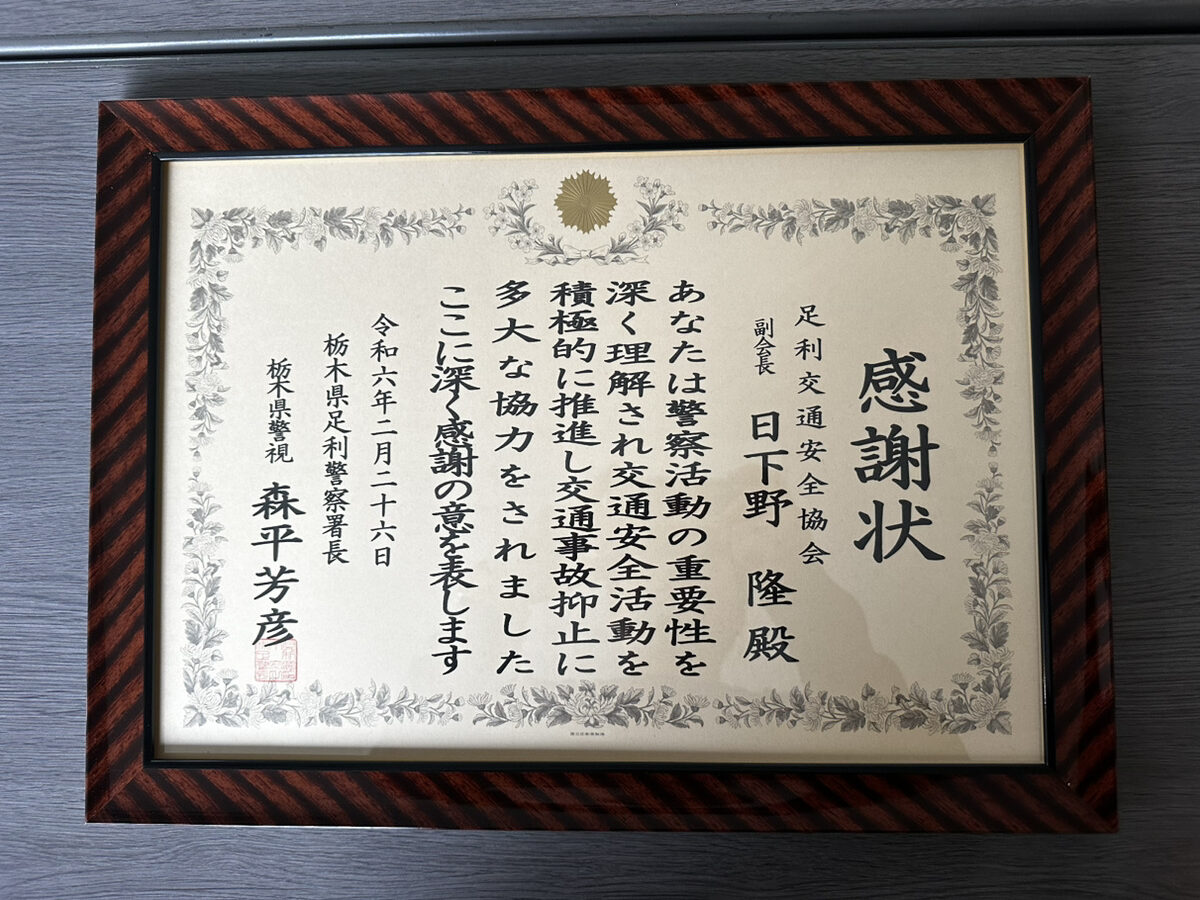 感謝状
足利交通安全協会
副会長 日下野 隆 殿
あなたは警察活動の重要性を
深く理解され交通安全活動を
積極的に推進し交通事故抑止に
多大な協力をされました
ここに深く感謝の意を表します
令和六年二月二十六日
栃木県足利警察署長
栃木県警視 森平芳彦